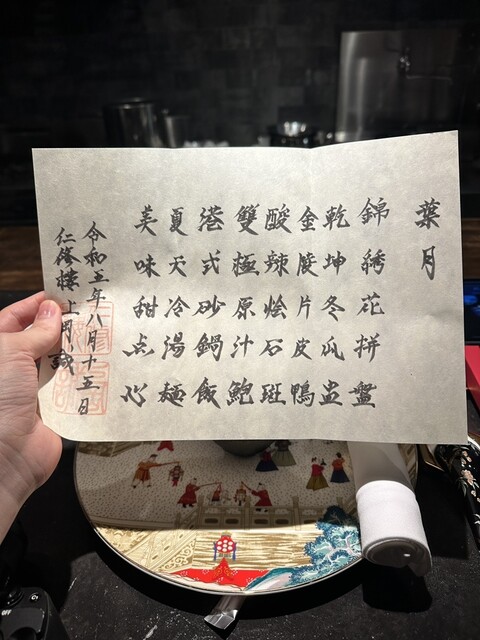 葉月
錦綉花拼盤
乾坤冬瓜盅
金陵片皮鴨
酸辣烩石斑
雙極原汁鮑
港式砂鍋飯
夏天冷湯麺
美味甜点心
令和五年八月十五日
仁修樓 上岡誠